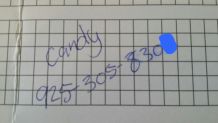 candy
925-305-830